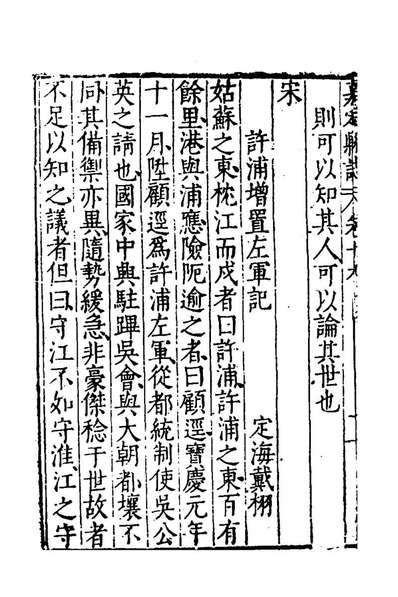 則可以知其人可以論其世也
宋
許浦增置左軍記 定海戴栩
姑蘇之東枕江而戍者曰許浦許浦之東百有
餘里港與浦應險阨逾之者曰顧逕寶慶元年
十一月陞顧逕爲許浦左軍從都統制使吳公
英之請也國家中興駐蹕吳會與大朝都壤不
同其備禦亦異隨勢緩急非豪傑稔于世故者
不足以知之議者但曰守江不如守淮江之守